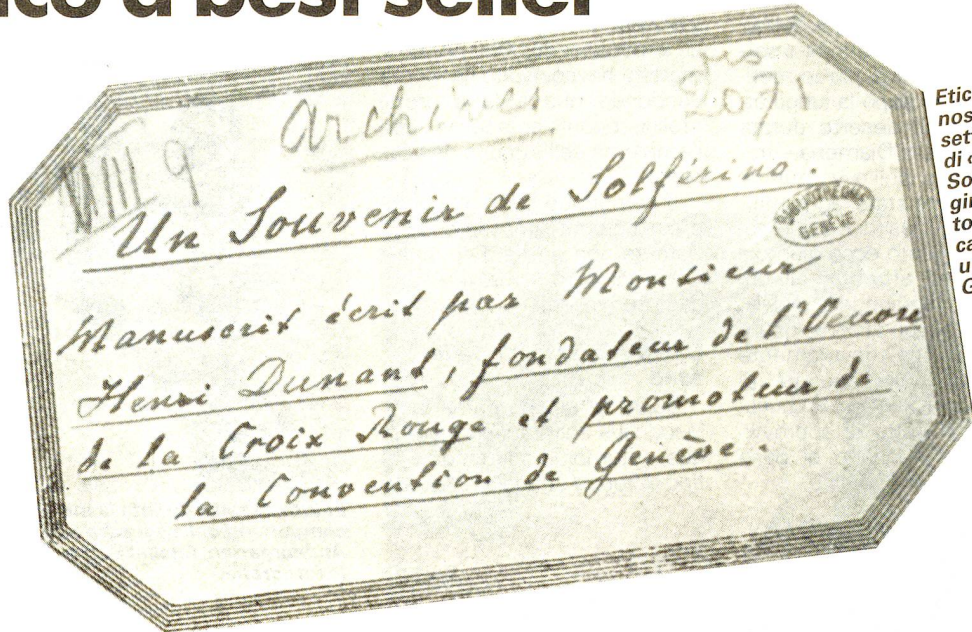 a best seller
Archives
ms
2071
VIII 9
Un Souvenir de Solférino.
BIBLIOTHEQUE
GENÈVE
Manuscrit écrit par Monsieur
Henri Dunant, fondateur de l'Oeuvre
de la Croix Rouge et promoteur de
la Convention de Genève.
Etic
nos
set
di
So
gi
to
ca
u
G